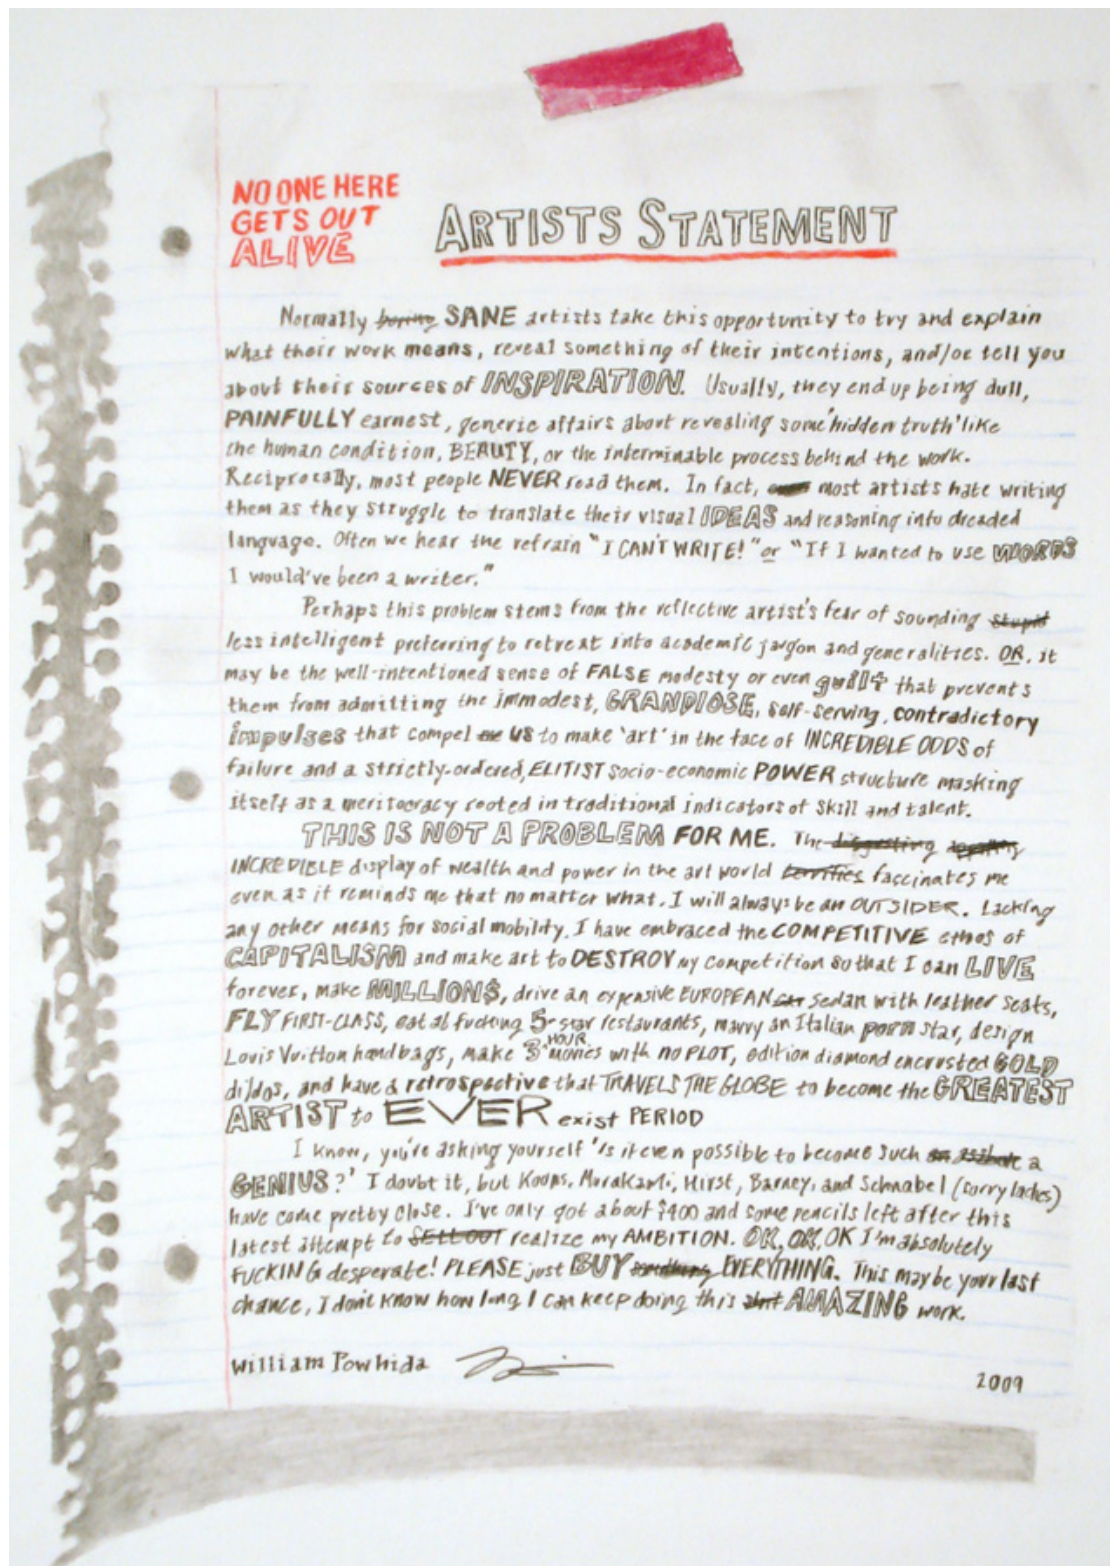 NO ONE HERE
GETS OUT
ALIVE
ARTISTS STATEMENT
Normally boring SANE artists take this opportunity to try and explain
what their work means, reveal something of their intentions, and/or tell you
about their sources of INSPIRATION. Usually, they end up being dull,
PAINFULLY earnest, generic affairs about revealing some 'hidden truth' like
the human condition, BEAUTY, or the interminable process behind the work.
Reciprocally, most people NEVER read them. In fact, most artists hate writing
them as they struggle to translate their visual IDEAS and reasoning into dreaded
language. Often we hear the refrain "I CAN'T WRITE!" or "If I wanted to use WORDS
I would've been a writer."
Perhaps this problem stems from the reflective artist's fear of sounding stupid
less intelligent preferring to retreat into academic jargon and generalities. OR, it
may be the well-intentioned sense of FALSE modesty or even guilt that prevents
them from admitting the immodest, GRANDIOSE, self-serving, contradictory
impulses that compel us to make 'art' in the face of INCREDIBLE ODDS of
failure and a strictly-ordered, ELITIST socio-economic POWER structure masking
itself as a meritocracy rooted in traditional indicators of skill and talent.
THIS IS NOT A PROBLEM FOR ME. The disgusting
INCREDIBLE display of wealth and power in the art world terrifies fascinates me
even as it reminds me that no matter what, I will always be an OUTSIDER. Lacking
any other means for social mobility, I have embraced the COMPETITIVE ethos of
CAPITALISM and make art to DESTROY my competition so that I can LIVE
forever, make MILLION$, drive an expensive EUROPEAN car sedan with leather seats,
FLY FIRST-CLASS, eat at fucking 5-star restaurants, marry an Italian porn star, design
Louis Vuitton handbags, make 3 HOUR movies with no PLOT, edition diamond encrusted GOLD
dildos, and have a retrospective that TRAVELS THE GLOBE to become the GREATEST
ARTIST to EVER exist PERIOD
I know, you're asking yourself 'is it even possible to become such an asshole a
GENIUS?' I doubt it, but Koons, Murakami, Hirst, Barney, and Schnabel (sorry ladies)
have come pretty close. I've only got about $400 and some pencils left after this
latest attempt to SELLOUT realize my AMBITION. OK, OK, OK I'm absolutely
FUCKING desperate! PLEASE just BUY something EVERYTHING. This may be your last
chance, I don't know how long I can keep doing this shit AMAZING work.
William Powhida
2009